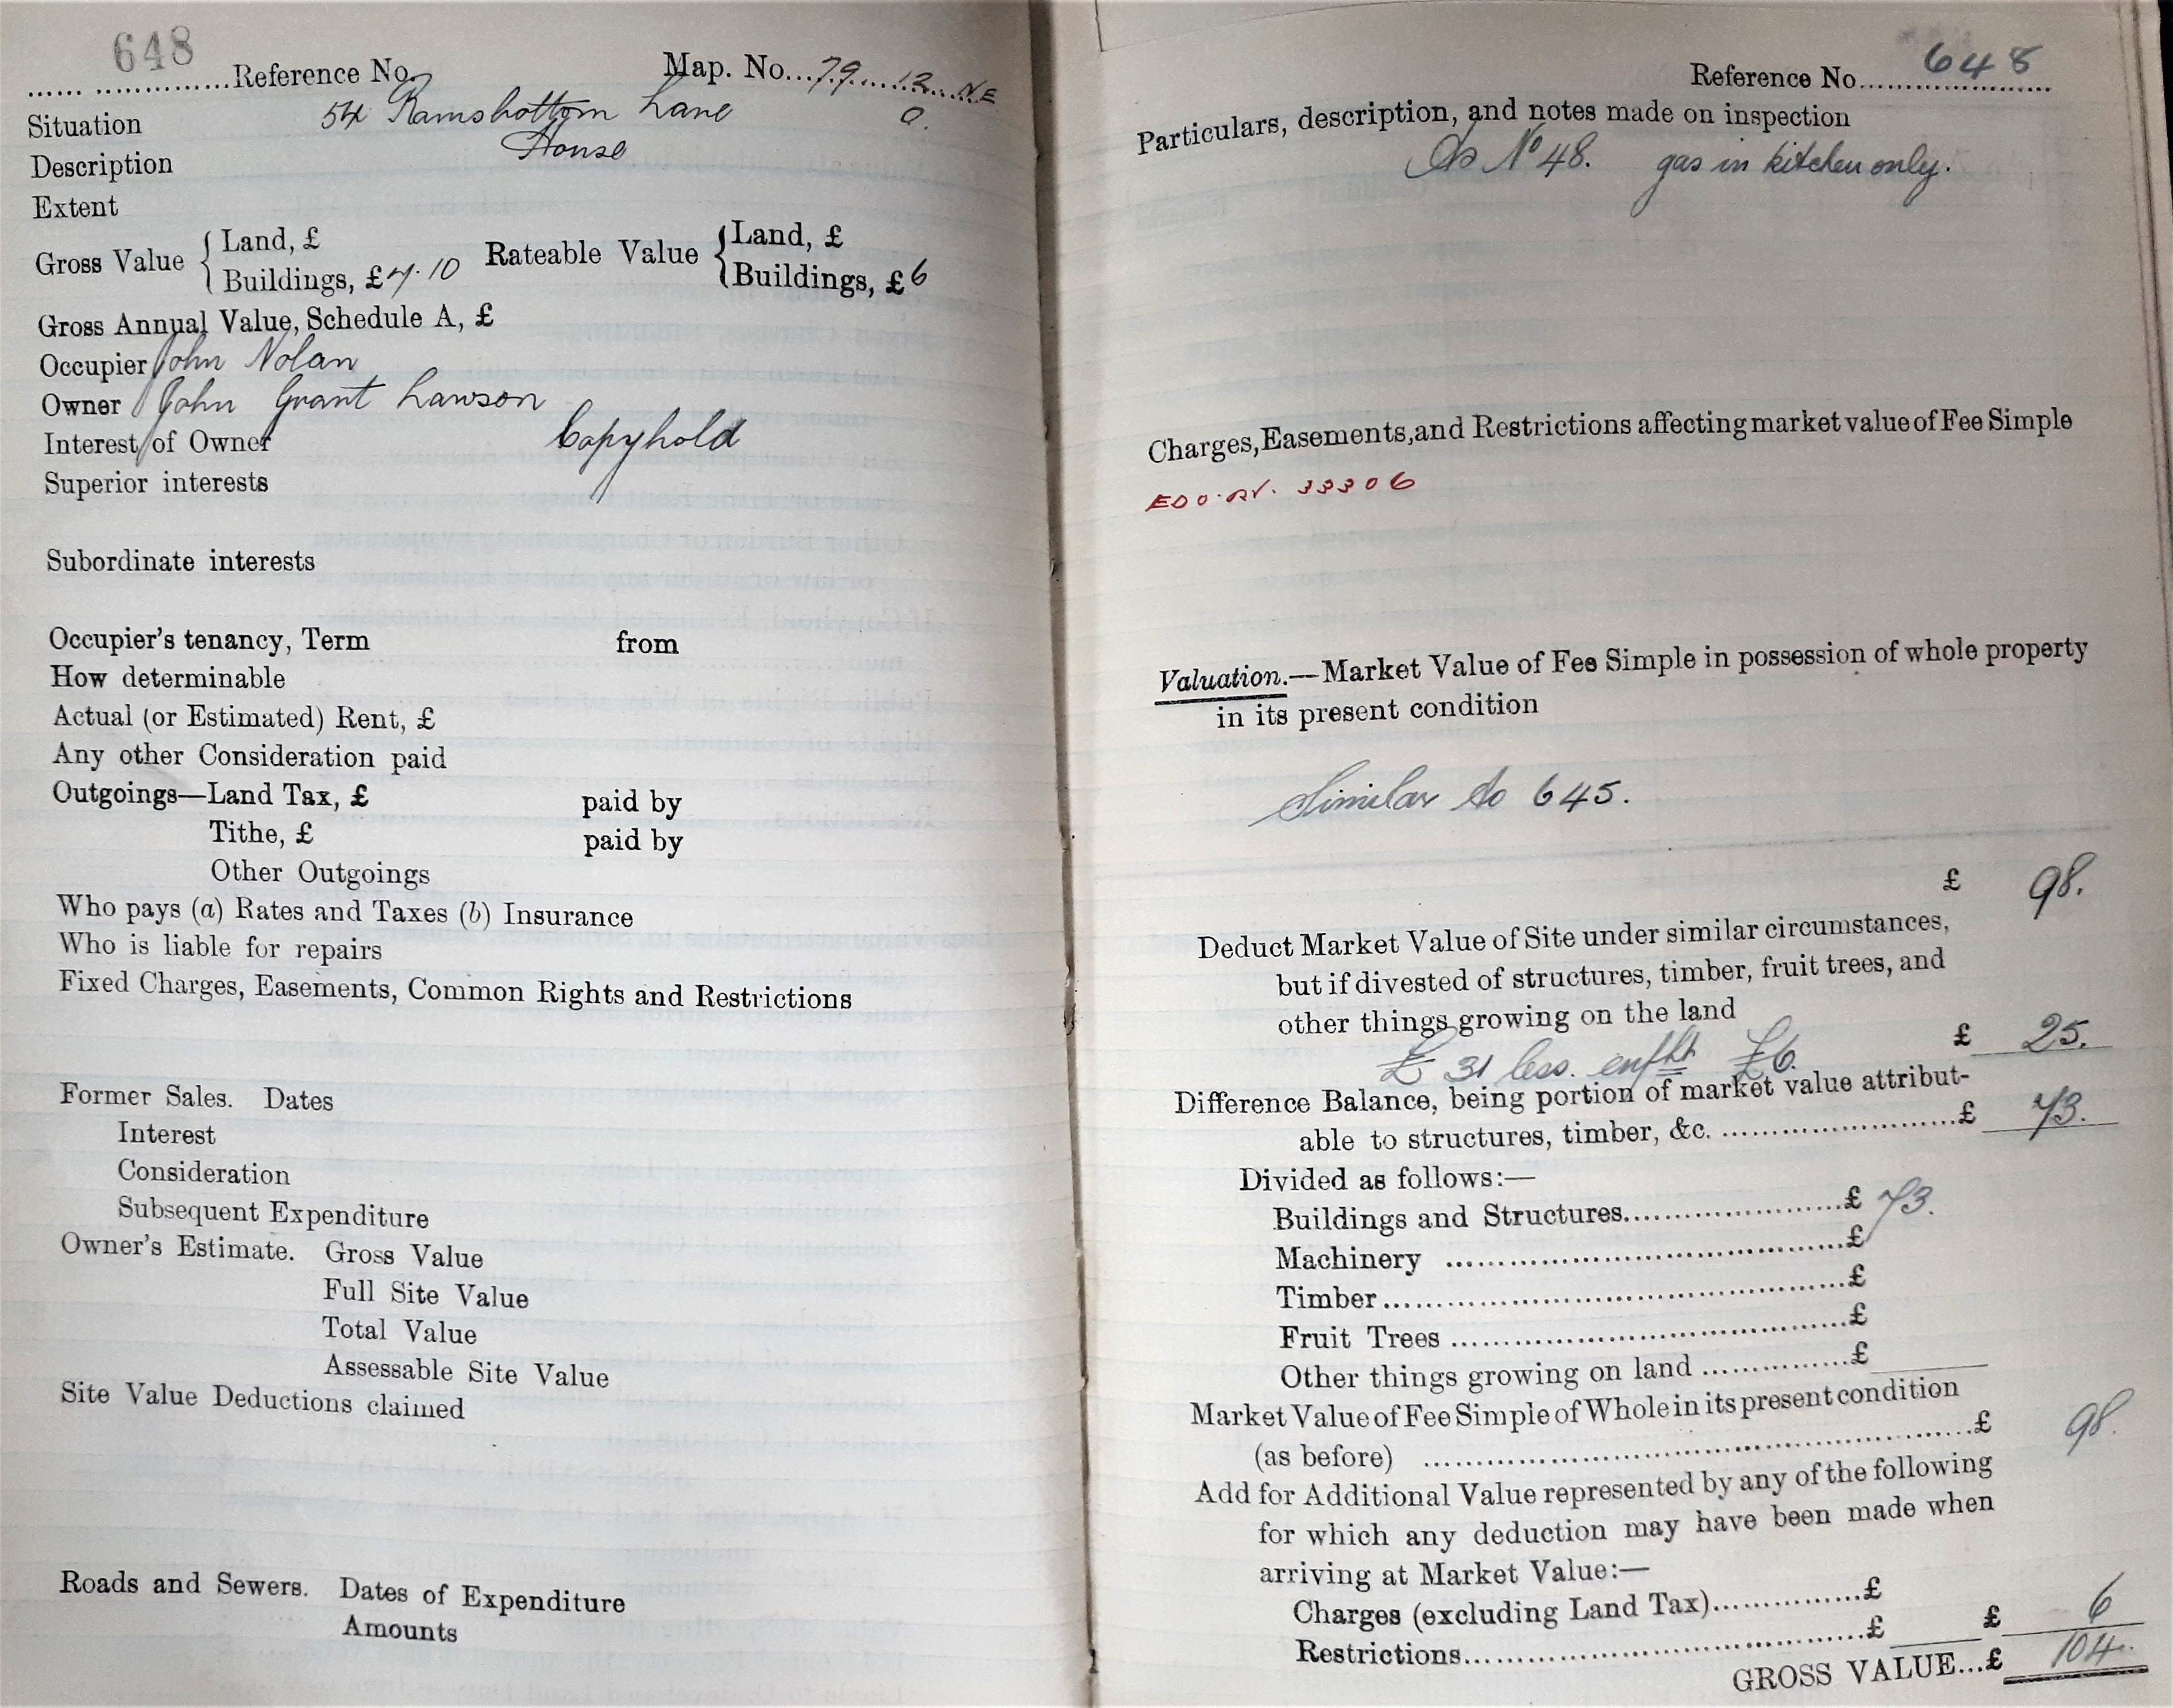 648
Reference No.
Map. No. 79 12 NE
Situation 54 Ramsbottom Lane a.
Description House
Extent
Gross Value { Land, £
Buildings, £ 7.10
Rateable Value { Land, £
Buildings, £ 6
Gross Annual Value, Schedule A, £
Occupier John Nolan
Owner John Grant Lawson
Interest of Owner Copyhold
Superior interests
Subordinate interests
Occupier's tenancy, Term from
How determinable
Actual (or Estimated) Rent, £
Any other Consideration paid
Outgoings—Land Tax, £ paid by
Tithe, £ paid by
Other Outgoings
Who pays (a) Rates and Taxes (b) Insurance
Who is liable for repairs
Fixed Charges, Easements, Common Rights and Restrictions
Former Sales. Dates
Interest
Consideration
Subsequent Expenditure
Owner's Estimate. Gross Value
Full Site Value
Total Value
Assessable Site Value
Site Value Deductions claimed
Roads and Sewers. Dates of Expenditure
Amounts
Reference No. 648
Particulars, description, and notes made on inspection
As No 48. gas in kitchen only.
Charges, Easements, and Restrictions affecting market value of Fee Simple
33306
Valuation.—Market Value of Fee Simple in possession of whole property
in its present condition
Similar to 645.
£ 98.
Deduct Market Value of Site under similar circumstances,
but if divested of structures, timber, fruit trees, and
other things growing on the land
£ 31 less. enfht £6. £ 25.
Difference Balance, being portion of market value attribut-
able to structures, timber, &c. £ 73.
Divided as follows:—
Buildings and Structures £ 73.
Machinery £
Timber £
Fruit Trees £
Other things growing on land £
Market Value of Fee Simple of Whole in its present condition
(as before) £ 98.
Add for Additional Value represented by any of the following
for which any deduction may have been made when
arriving at Market Value:—
Charges (excluding Land Tax) £
Restrictions £ £ 6
GROSS VALUE...£ 104.